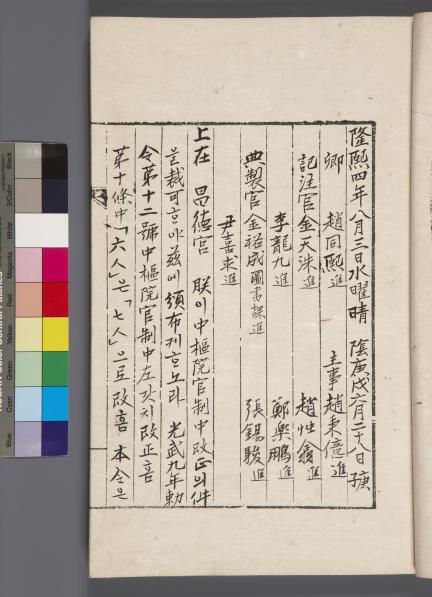 隆熙四年八月三日水曜晴 陰庚戌六月二十八日庚子
卿 趙同熙進 主事趙秉億進
記注官金天洙進 趙性翕進
李龍九進 鄭樂鵬進
典製官金裕成圖書課進 張錫駿進
尹喜求進
上在 昌德宮 朕이中樞院官制中改正의件
을裁可ᄒᆞ야玆에頒布케ᄒᆞ노라 光武九年勅
令第十二號中樞院官制中左갓치改正홈
第十條中「六人」은「七人」으로改홈 本令은
Black
3/Color
White
Magenta
Red
Yellow
Green
Cyan
Blue